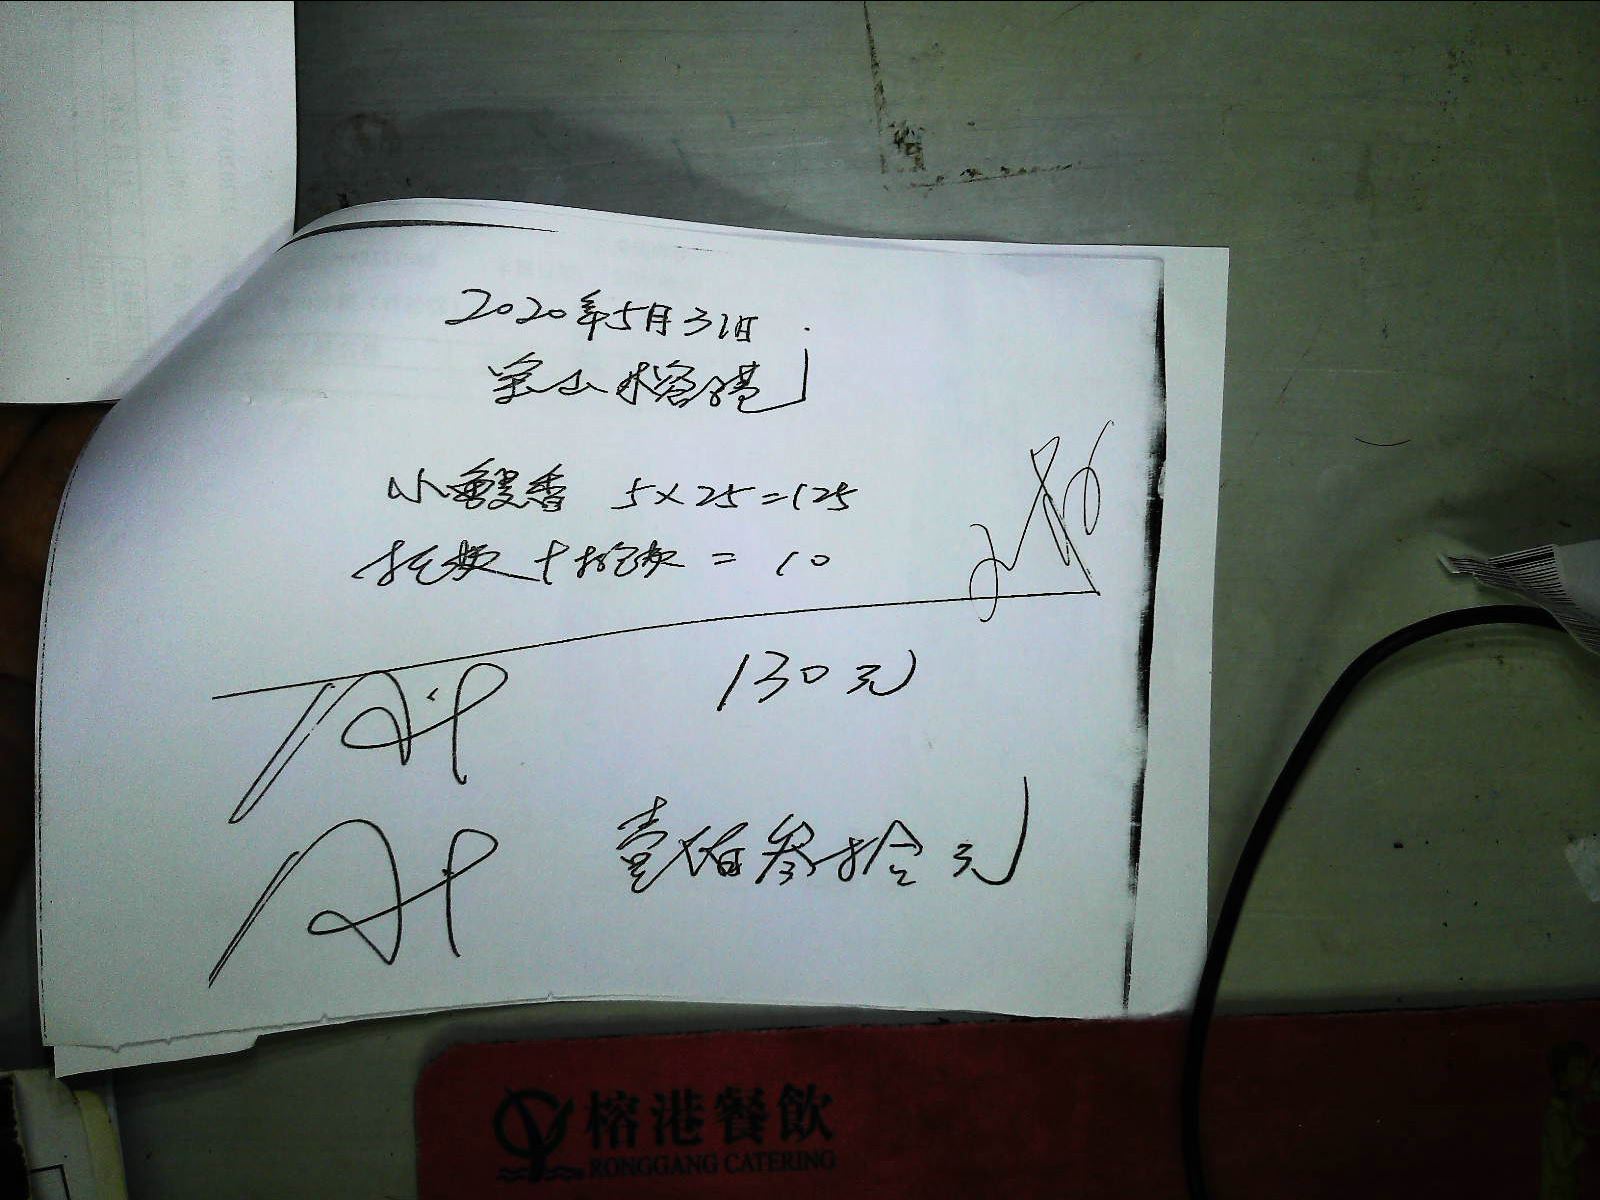 2020年5月31日
宝山榕港
小鳗香 5×25=125
托颊+托颊 = 10
130元
壹佰叁拾元
榕港餐飲
RONGGANG CATERING